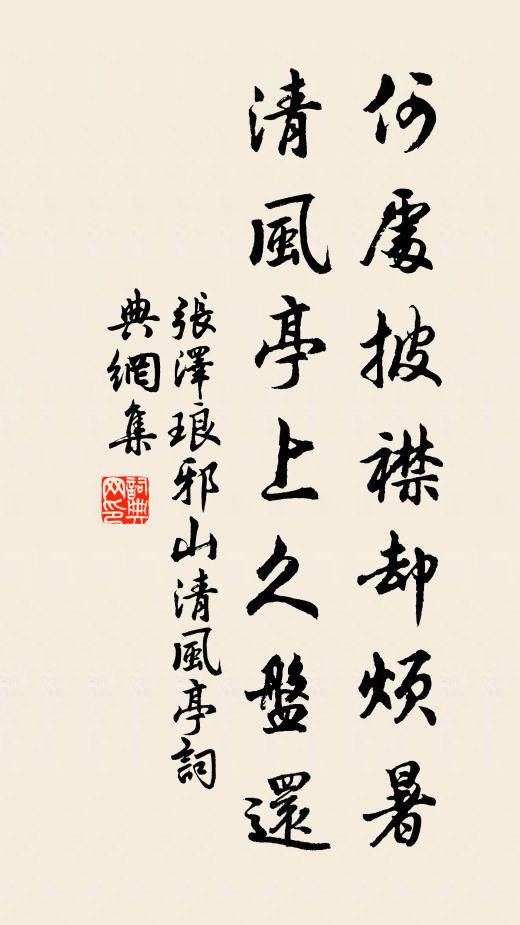 何處披襟却煩暑
清風亭上久盤還
張澤琅邪山清風亭詞
典網集
詞典
网印